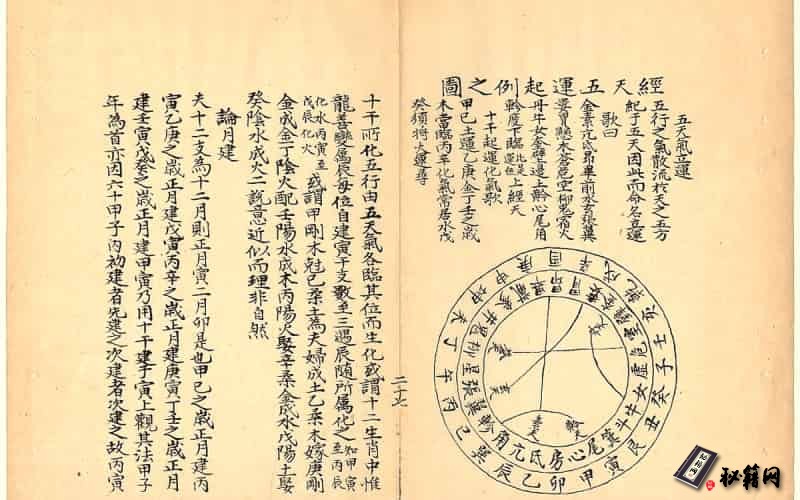 經天五運起例之圖
五天氣立運
五行之氣散流於天之五方
紀于五天因此而命名立運
歌曰
金素亢氐昴畢前水玄張翼
婁胃纏木蒼危室柳鬼宿火
丹牛女奎壁邊土黅心尾角
軫度下臨此是運位上經天
十干起運化氣歌
甲己土運乙庚金丁壬之歲
木當臨丙辛化氣常居水戊
癸須將火運尋
乾亥壬子癸丑艮寅甲卯乙辰巽巳丙午丁未坤申庚酉辛戌
角亢氐房心尾箕斗牛女虛危室壁奎婁胃昴畢觜參井鬼柳星張翼軫
二十七
十干所化五行由五天氣各臨其位而生化或謂十二生肖中惟
龍善變屬辰每位自建寅干支數至三遇辰隨所屬化之如甲寅至丙辰
化水丙寅至戊辰化火或謂甲剛木尅己柔土為夫婦成土乙柔木嫁庚剛
金成金丁陰火配壬陽水成木丙陽火娶辛柔金成水戊陽土娶
癸陰水成火二說意近似而理非自然
論月建
夫十二支為十二月則正月寅二月卯是也甲己之歲正月建丙
寅乙庚之歲正月建戊寅丙辛之歲正月建庚寅丁壬之歲正月
建壬寅戊癸之歲正月建甲寅乃用十干建于寅上觀其法甲子
年為首亦因六十甲子內初建者先建之次建者次建之故丙寅
秘籍网